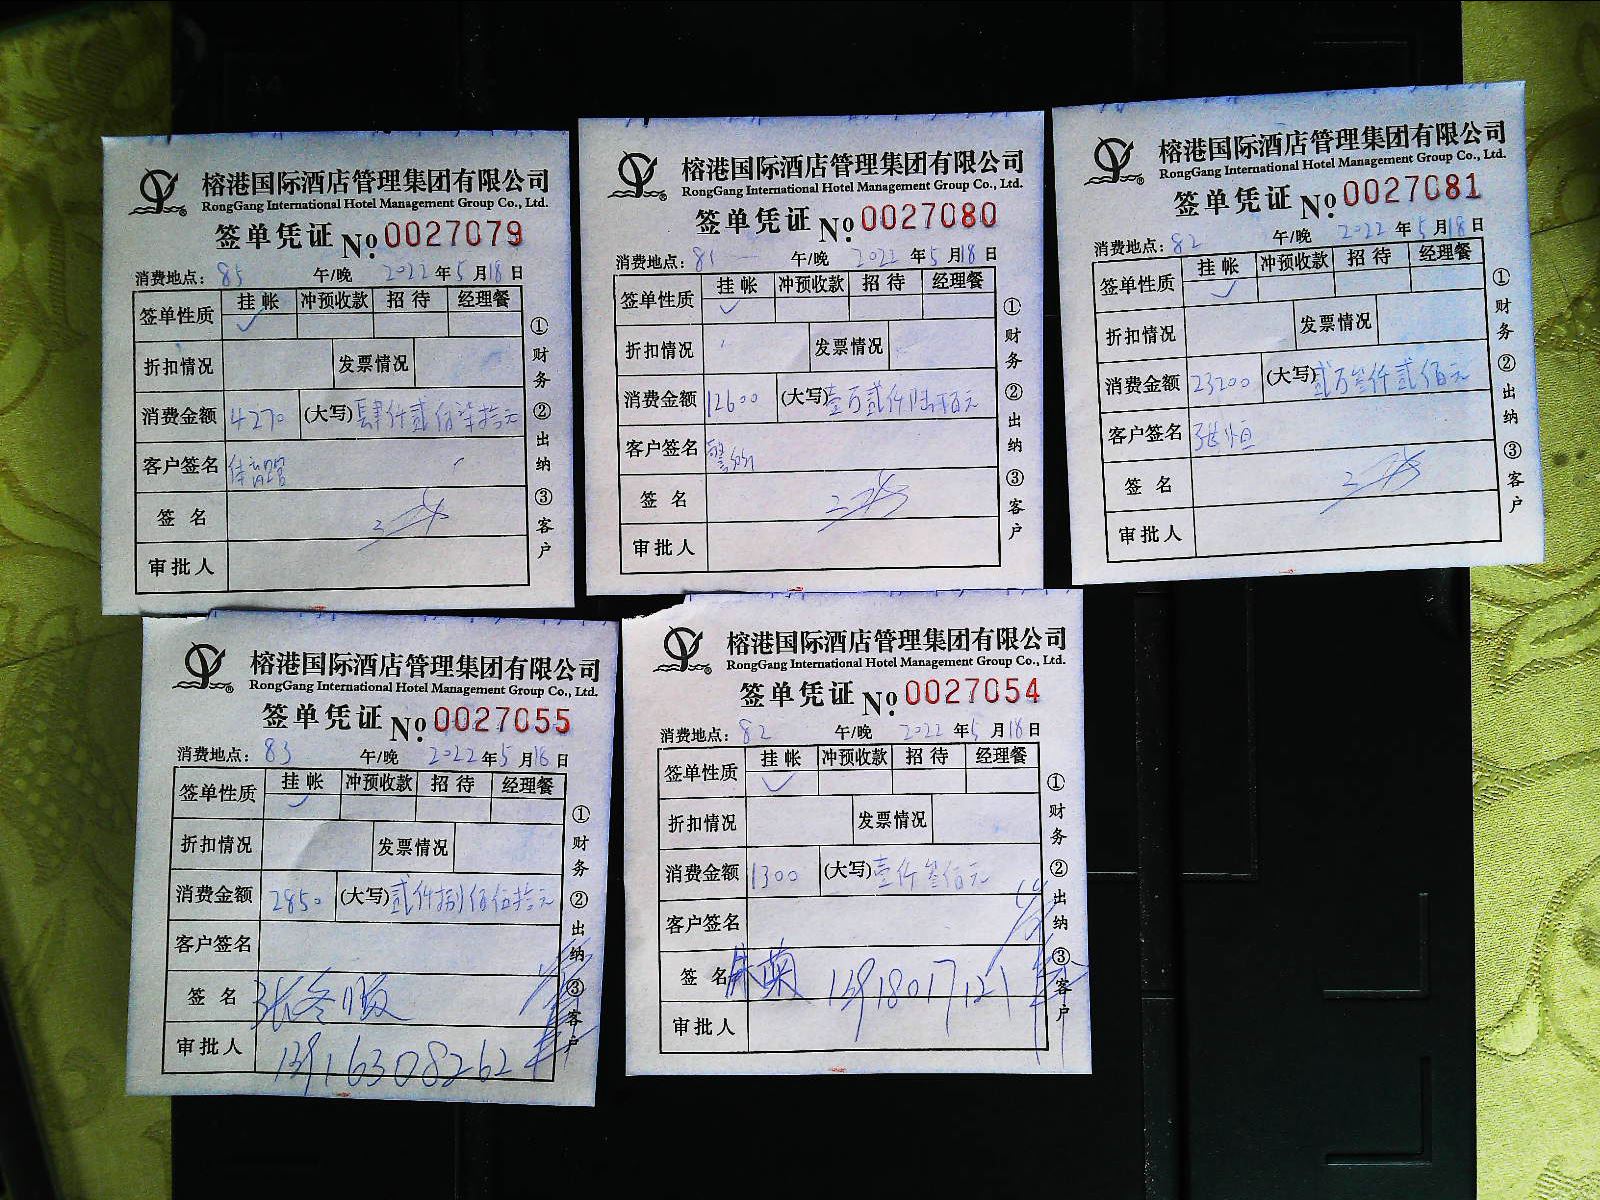 榕港国际酒店管理集团有限公司
RongGang International Hotel Management Group Co., Ltd.
签单凭证 No. 0027079
消费地点: 85 午/晚 2022 年 5 月 18 日
签单性质 挂帐 冲预收款 招待 经理餐
✓
折扣情况 发票情况
消费金额 4270 (大写) 肆仟贰佰柒拾元
客户签名 体育馆
签名
审批人
①财务 ②出纳 ③客户
榕港国际酒店管理集团有限公司
RongGang International Hotel Management Group Co., Ltd.
签单凭证 No. 0027080
消费地点: 81 午/晚 2022 年 5 月 18 日
签单性质 挂帐 冲预收款 招待 经理餐
✓
折扣情况 发票情况
消费金额 12600 (大写) 壹万贰仟陆佰元
客户签名
签名
审批人
①财务 ②出纳 ③客户
榕港国际酒店管理集团有限公司
RongGang International Hotel Management Group Co., Ltd.
签单凭证 No. 0027081
消费地点: 82 午/晚 2022 年 5 月 18 日
签单性质 挂帐 冲预收款 招待 经理餐
✓
折扣情况 发票情况
消费金额 23200 (大写) 贰万叁仟贰佰元
客户签名 张恒
签名
审批人
①财务 ②出纳 ③客户
榕港国际酒店管理集团有限公司
RongGang International Hotel Management Group Co., Ltd.
签单凭证 No. 0027055
消费地点: 83 午/晚 2022 年 5 月 18 日
签单性质 挂帐 冲预收款 招待 经理餐
✓
折扣情况 发票情况
消费金额 2850 (大写) 贰仟捌佰伍拾元
客户签名
签名 张冬顺
审批人 13916308262
①财务 ②出纳 ③客户
榕港国际酒店管理集团有限公司
RongGang International Hotel Management Group Co., Ltd.
签单凭证 No. 0027054
消费地点: 82 午/晚 2022 年 5 月 18 日
签单性质 挂帐 冲预收款 招待 经理餐
✓
折扣情况 发票情况
消费金额 1300 (大写) 壹仟叁佰元
客户签名
签名 朱菊 13918017121
审批人
①财务 ②出纳 ③客户